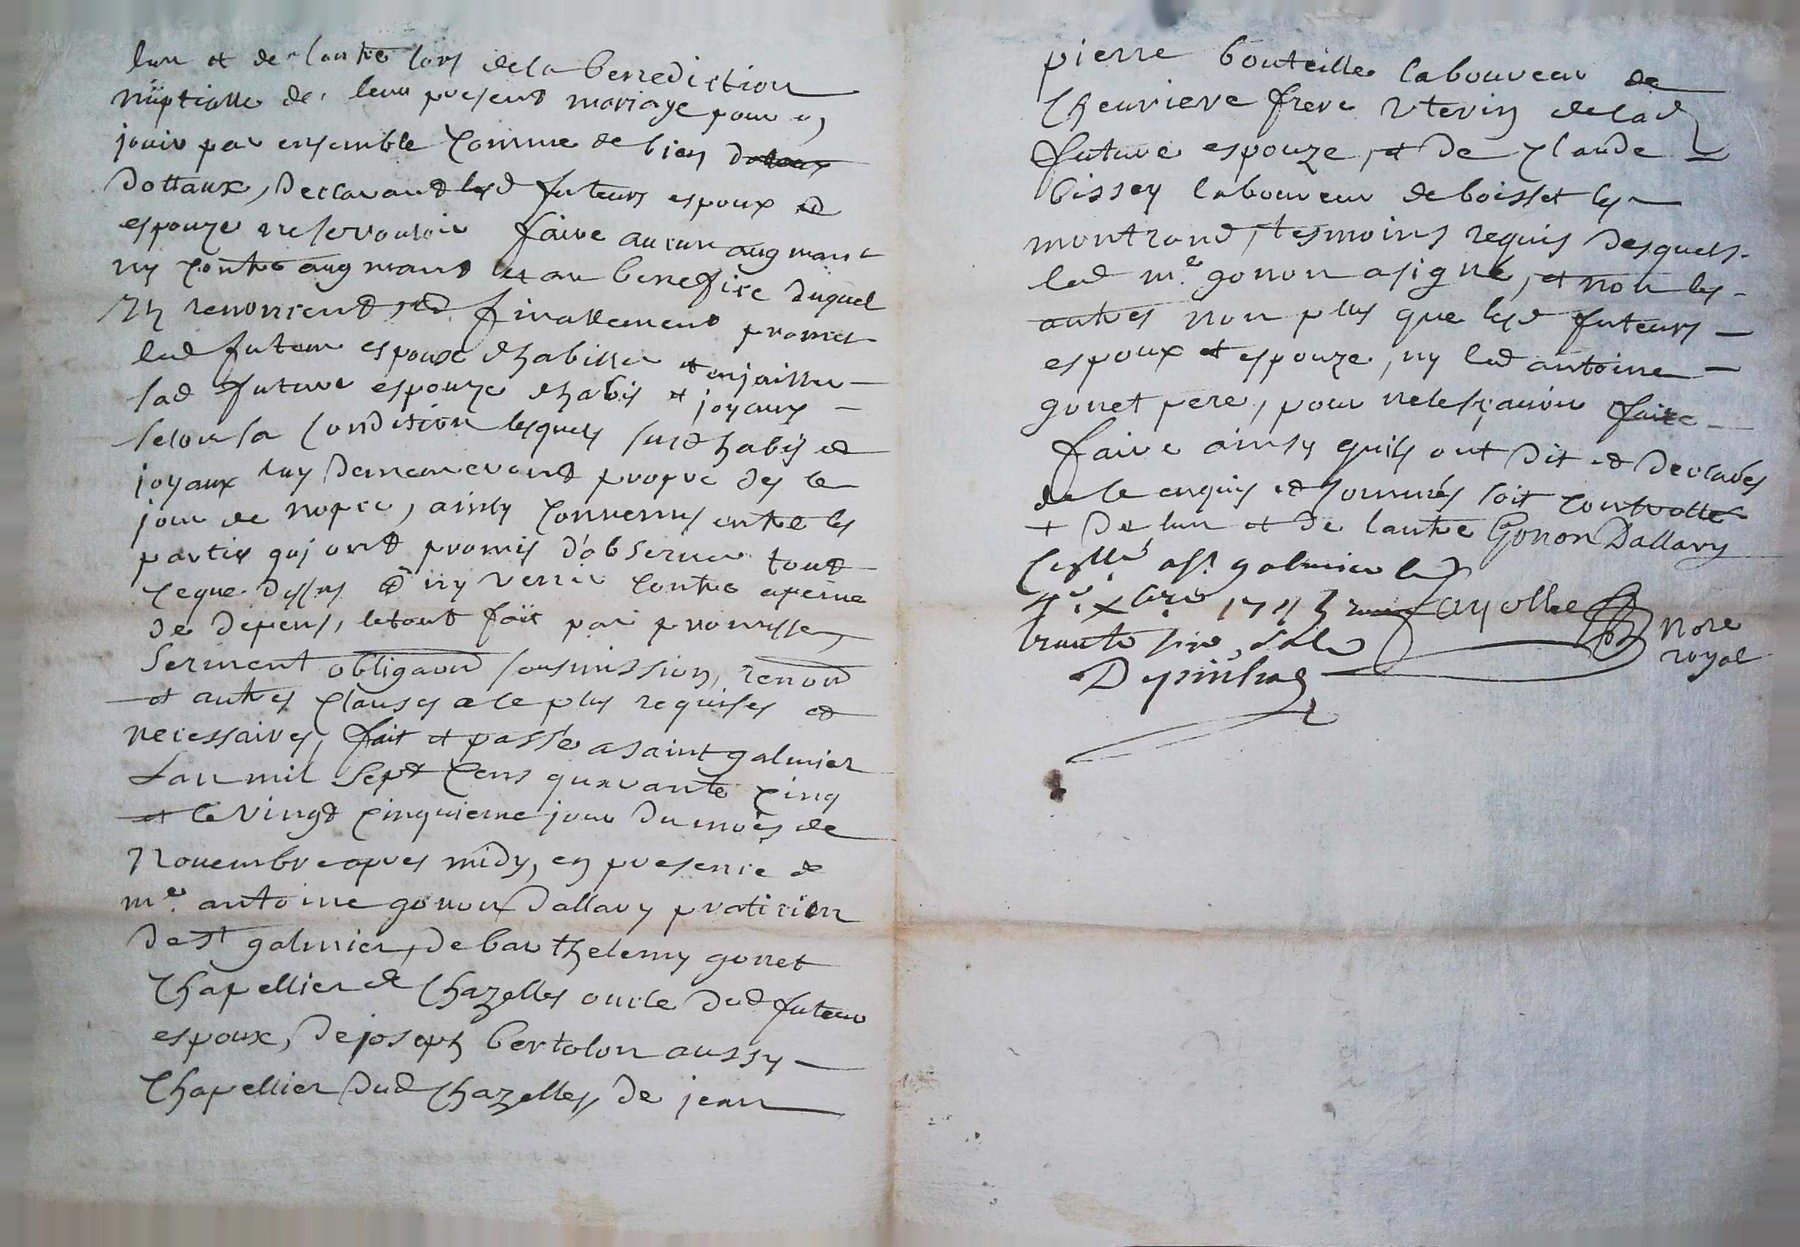 lun et de lautre lors dela benediction
nuptialle de leur present mariage pour en
jouir par ensemble comme de bien dotaux
dottaux, declarant lesd futeurs espoux et
espouze ne se vouloir faire aucun augmant
ny contre augmant et au benefice duquel
ils renoncent et finallement promet
led futeur espoux dhabiller et enjailler
sad future espouze dhabis et joyaux
selon sa condition lesquels susd habis et
joyaux luy demeureront propre des le
jour de nopce, ainsy convenus entre les
parties qui ont promis d'observer tout
ceque dessus & ny venir contre apeine
de depens, letout fait par promesse,
serment obligaon sousmission, renon
et autres clauses a ce plus requises et
necessaires, fait et passé a saint galmier
Lan mil sept cens quarante cinq
et le vingt cinquieme jour du mois de
Novembre apres midy, en presence de
me. antoine gonon Dallary praticien
de st galmier, de barthelemy gonet
Chapellier de Chazelles oncle dud futeur
espoux, de joseph bertolon aussy
Chapellier dud Chazelles, de jean
pierre bouteille laboureur de
Chevriere frere uterin delad
future espouze, et de claude
bissey laboureur de boisset les
montrond, tesmoins requis desquels
led me. gonon a signé, et non les
autres non plus que lesd futeurs
espoux et espouze, ny led antoine
gonet pere, pour ne le sçavoir faire
faire ainsy quils ont dit et declarés
de ce enquis et sommés soit controllé
+ de lun et de lautre Gonon Dallary
Cllé a st. galmier le d
4e. xbre 1745 Fayolle
trente six sols nore
royal
Despinhas